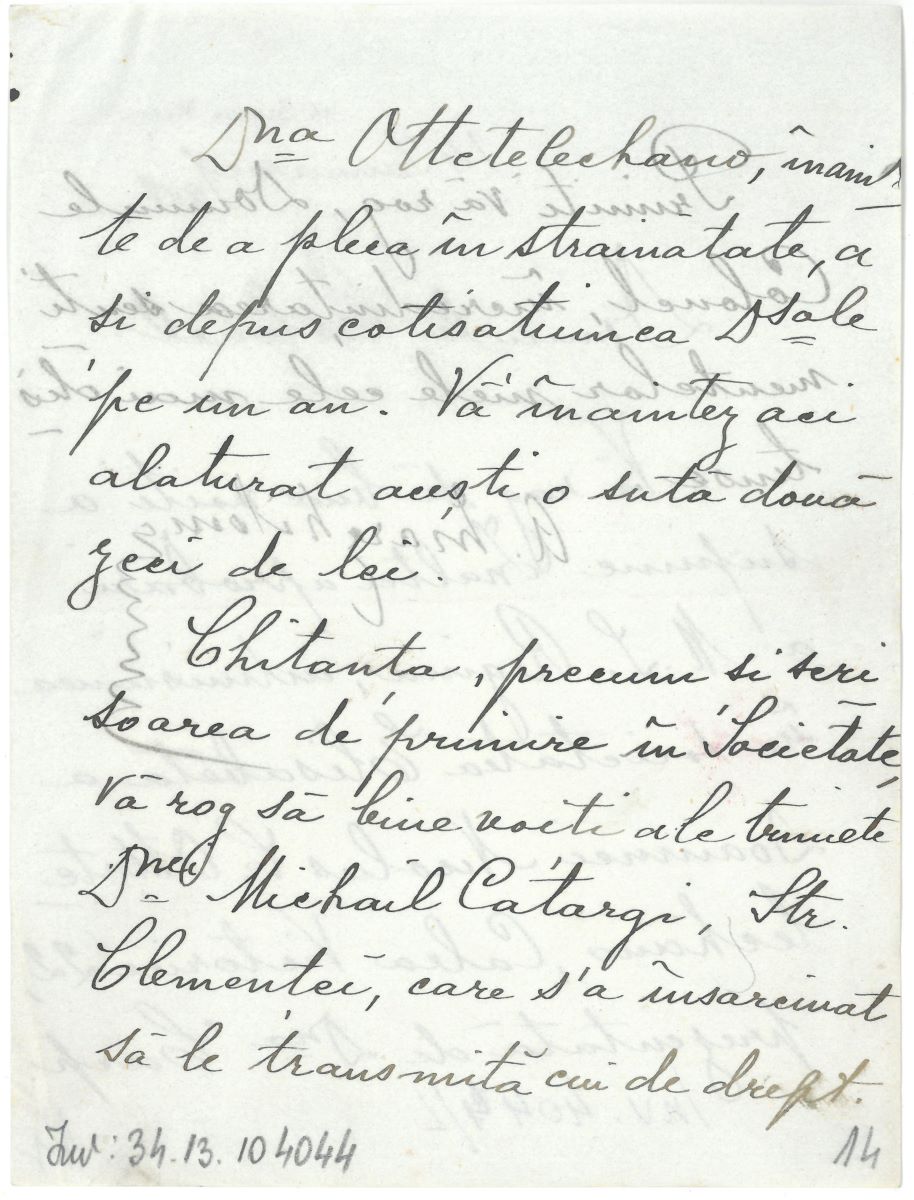 Dna Ottetelechano, înain
te de a pleca în strainătate, a
și depus, cotisatiunea Dsale
pe un an. Vă înaintez aci
alaturat acești o sută două
zeci de lei.
Chitanța, precum si scri
soarea de primire în Societate,
vă rog să bine voiți ale trimete
Dnei Michail Catargi, Str.
Clemenței, care s'a însarcinat
să le transmită cui de drept.
Inv: 34.13.10 4044
14